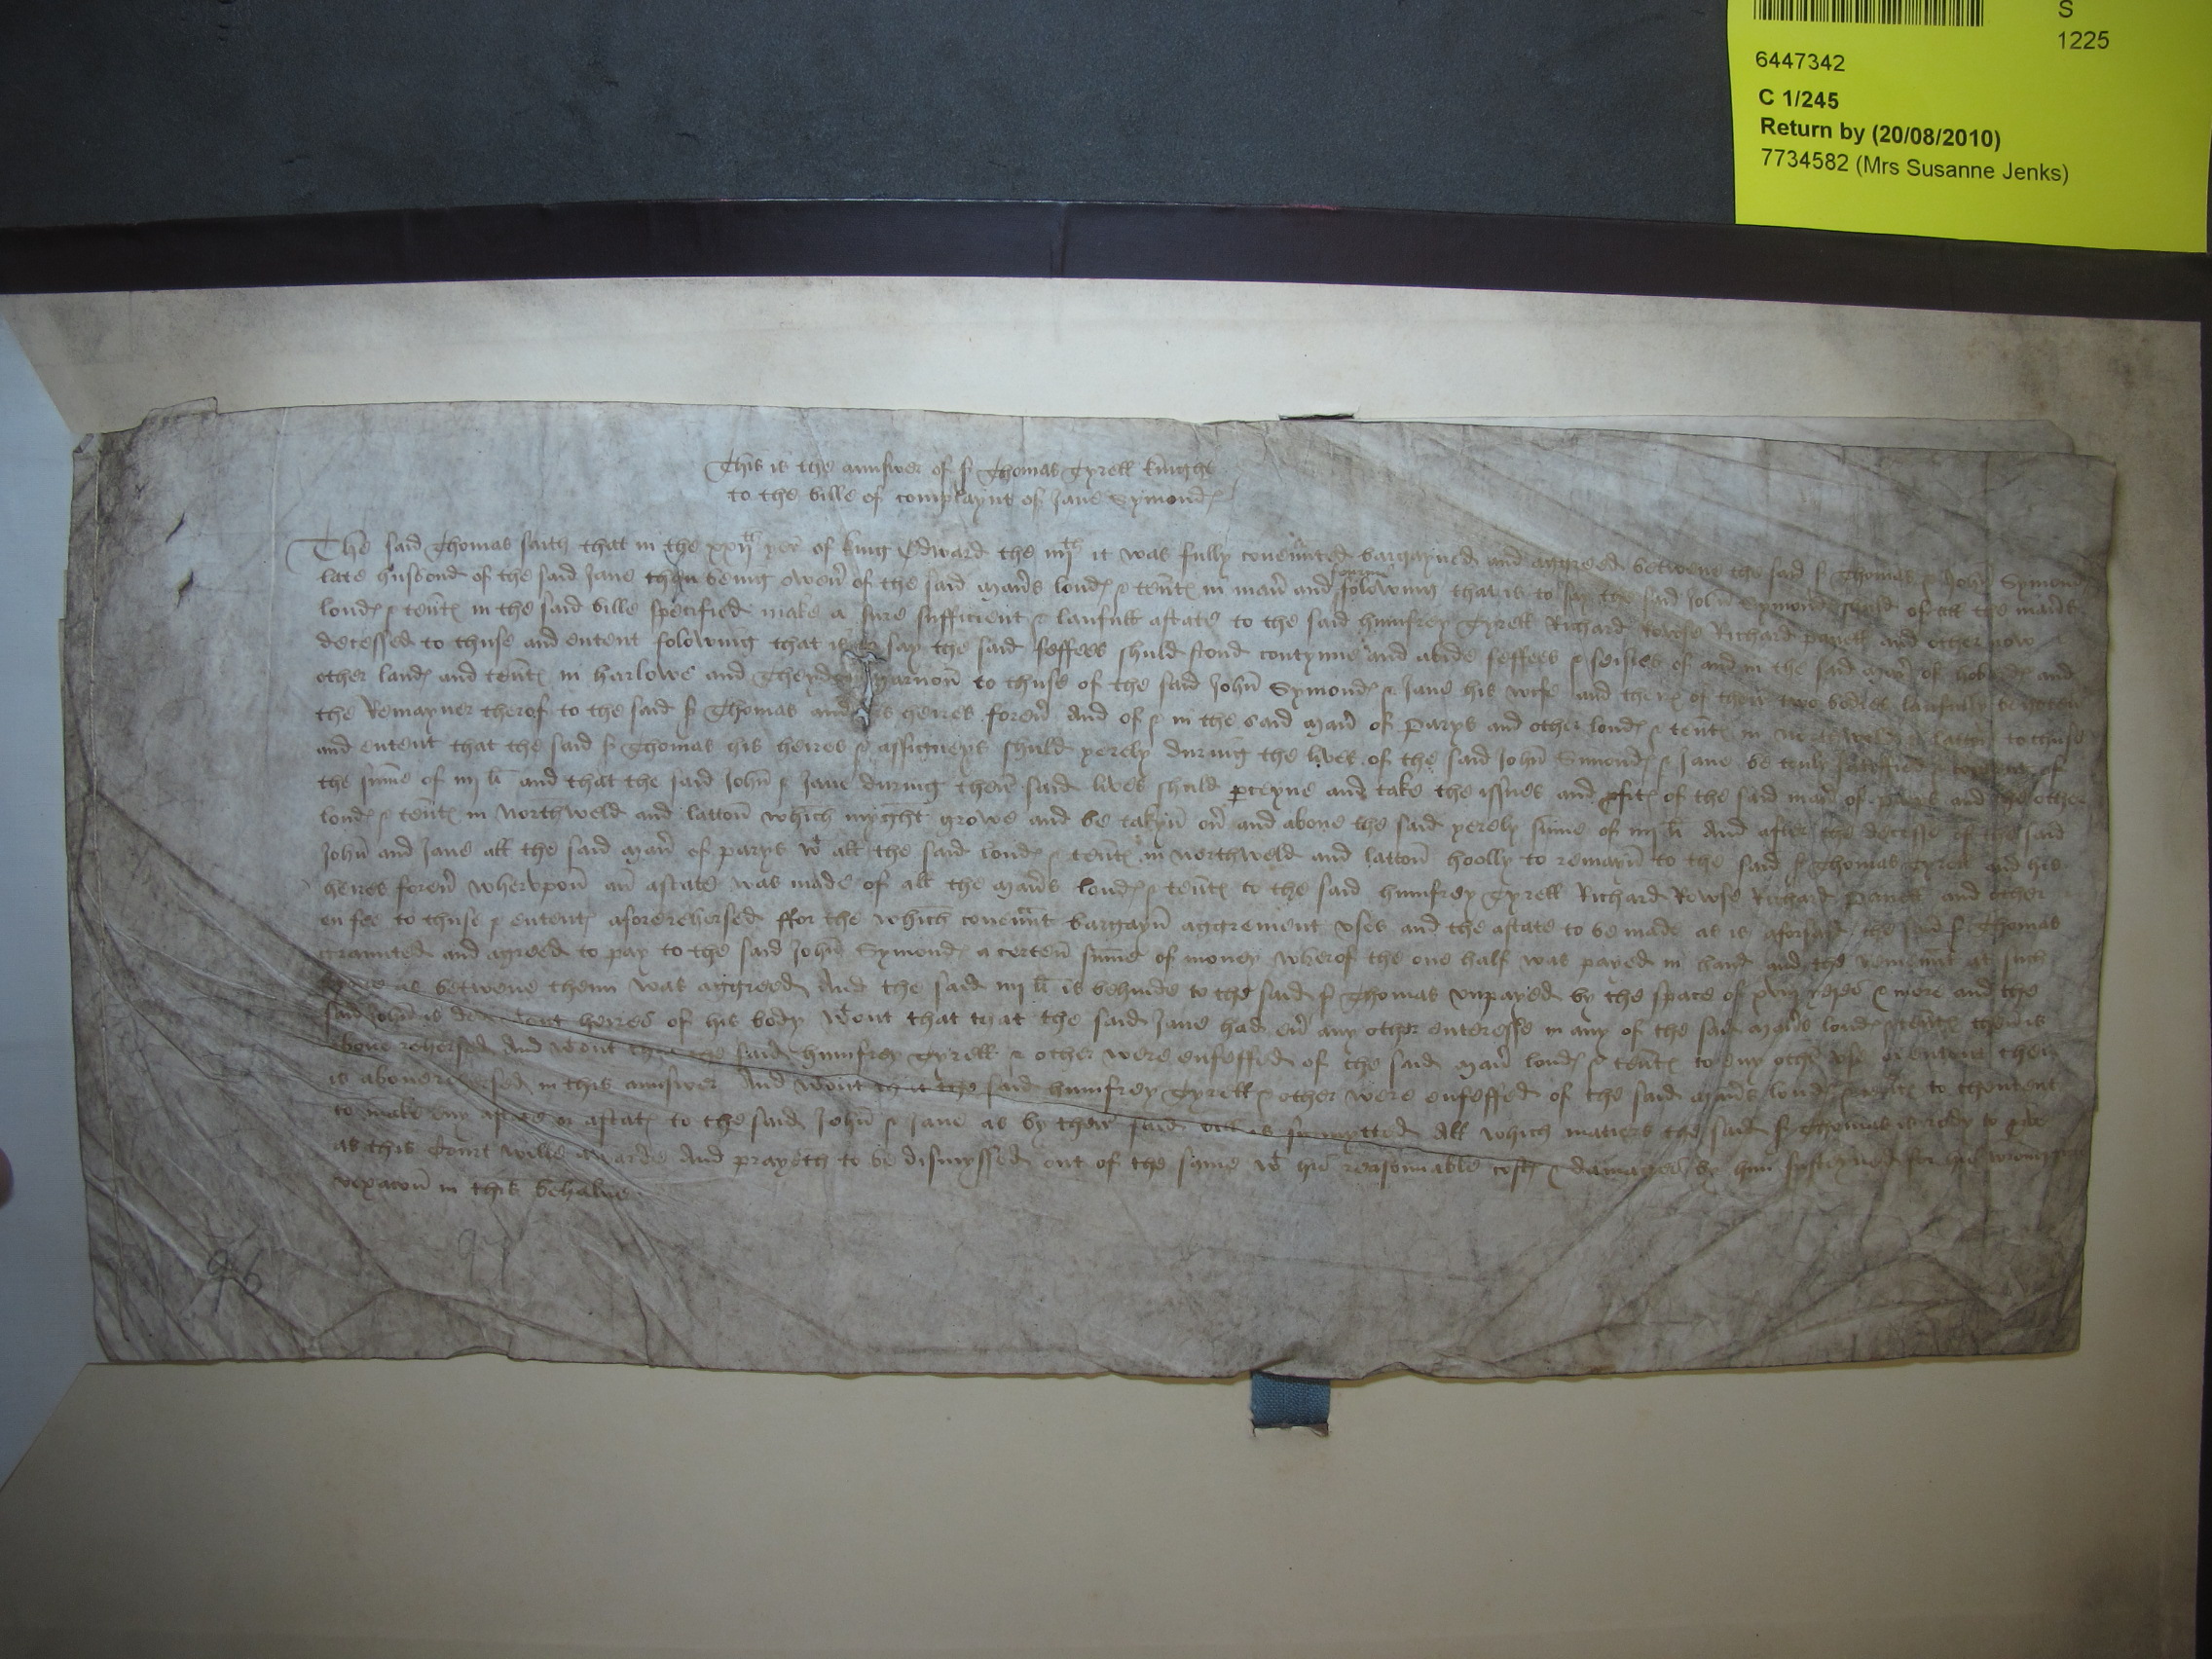 S
1225
6447342
C 1/245
Return by (20/08/2010)
7734582 (Mrs Susanne Jenks)
This is the aunswer of sr Thomas Tyrell knight
to the bille of complaynt of Jane Symond
The said Thomas saith that in the xxijth yer of king Edward the iiijth it was fully conennted bargayned and aggreed betwene the said sr Thomas & John Symond
late husbond of the said Jane then being owen of the said man's lond & ten't in man and fourme folowing that is to say the said John Symond shuld of all the man's
lond & ten't in the said bille specified make a sure sufficient & laufull astate to the said humfrey Tyrell Richard Rowse Richard panell and other now
decessed to thuse and entent folowing that is to say the said feffees shuld stond contynue and abide feffees & seises of and in the said man of and
other land and ten't in harlowe and Theydon garnon to thuse of the said John Symond & Jane his wife and of their two bodies laufully begoten
the Remayner therof to the said sr Thomas and his heires foreu' And of & in the said man of Parys and other lond & ten't in northweld & latton to thuse
and entent that the said sr Thomas his heires & assigneys shuld yerely during the lyves of the said John Simond & Jane be truly of
the sume of iiij li and that the said John & Jane during their said lives shuld p'ceyue and take the issues and p'fit of the said man of parys and the other
lond & ten't in Northweld and latton which myght growe and be takyn ou' and aboue the said yerely sume of iiij li And after the decesse of the said
John and Jane all the said man of parys wt all the said lond & ten't in northweld and latton hoolly to remayn to the said sr Thomas Tyrell and his
heires foreu' wherupon an astate was made of all the man's lond & ten't to the said humfrey Tyrell Richard Rowse Richard Panell and other
en fee to thuse & entent aforerehersed ffor the which conennt bargayn aggrement vses and the astate to be made as is aforsaid the said sr Thomas
graunted and agreed to pay to the said John Symond a certen sume of money wherof the one half was payed in hand and the at such
as betwene them was aggreed And the said iiij li is behinde to the said sr Thomas vnpayed by the space of yeres & more and the
said John is heires of his body wtout that that the said Jane had eu' any other enteresse in any of the said man's lond & ten't then is
aboue rehersed And wtout that the said humfrey Tyrell & other were enfeffed of the said man lond & ten't to eny other vse or entent then
is aboue rehersed in this aunswer And wtout that the said humfrey Tyrell & other were enfeffed of the said man's lond & ten't to thentent
to make eny astate or astat to the said John & Jane as by their said is surmytted All which maters the said sr Thomas is redy to
as this Court wille awarde And prayeth to be dismyssed out of the same wt his reasonnable cost & damages by him susteyned for his wrongfull
vexacon in this behalue
96